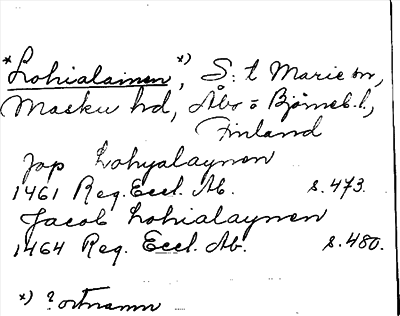 *Lohialainen*), S:t Marie sn,
Masku hd, Åbo o Björneb. l.,
Finland
Jöp Lohyalaynen
1461 Reg. Eccl. Ab. s. 473.
Jacob Lohialaynen
1464 Reg. Eccl. Ab. s. 480.
*) ? ortnamn